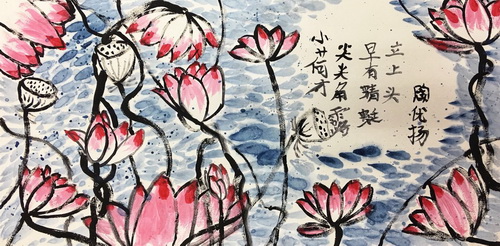 小荷才
尖尖角露
早有蜻蜓
立上头
陶扬